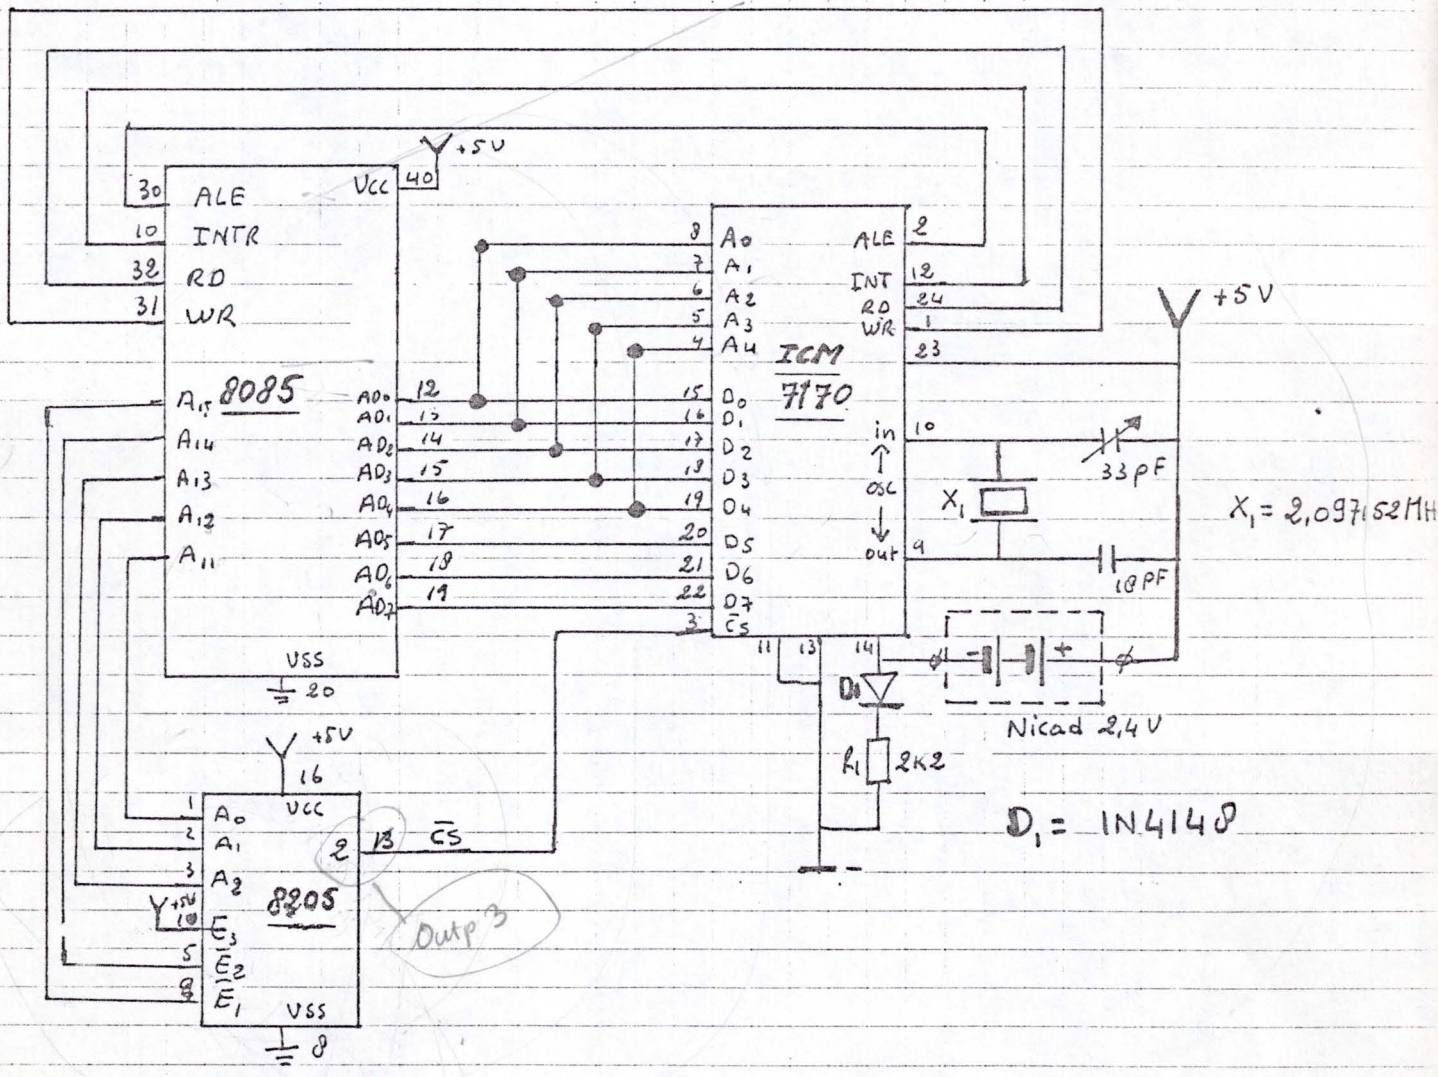 +5V
30 ALE
VCC 40
10 INTR
32 RD
31 WR
8085
A15
A14
A13
A12
A11
AD0 12
AD1 13
AD2 14
AD3 15
AD4 16
AD5 17
AD6 18
AD7 19
VSS
20
8 A0
7 A1
6 A2
5 A3
4 A4
ICM
7170
15 D0
16 D1
17 D2
18 D3
19 D4
20 D5
21 D6
22 D7
3 C̅S̅
ALE 2
INT 12
RD 24
WR 1
23
in 10
OSC
out 9
11
13
14
+5V
33pF
X1
X1 = 2,097152MH
18PF
- +
Nicad 2,4V
D1
R1 2K2
D1 = 1N4148
+5V
16
VCC
1 A0
2 A1
3 A2
+5V
E3
5 E̅2
E̅1
8205
2 13 C̅S̅
Outp 3
VSS
8